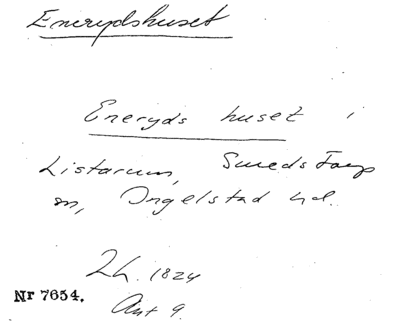 Enerydshuset
Eneryds huset i
Listarum, Smedstorps
sn, Ingelstad hd.
Lh. 1824
Nr 7654.
Akt 9.